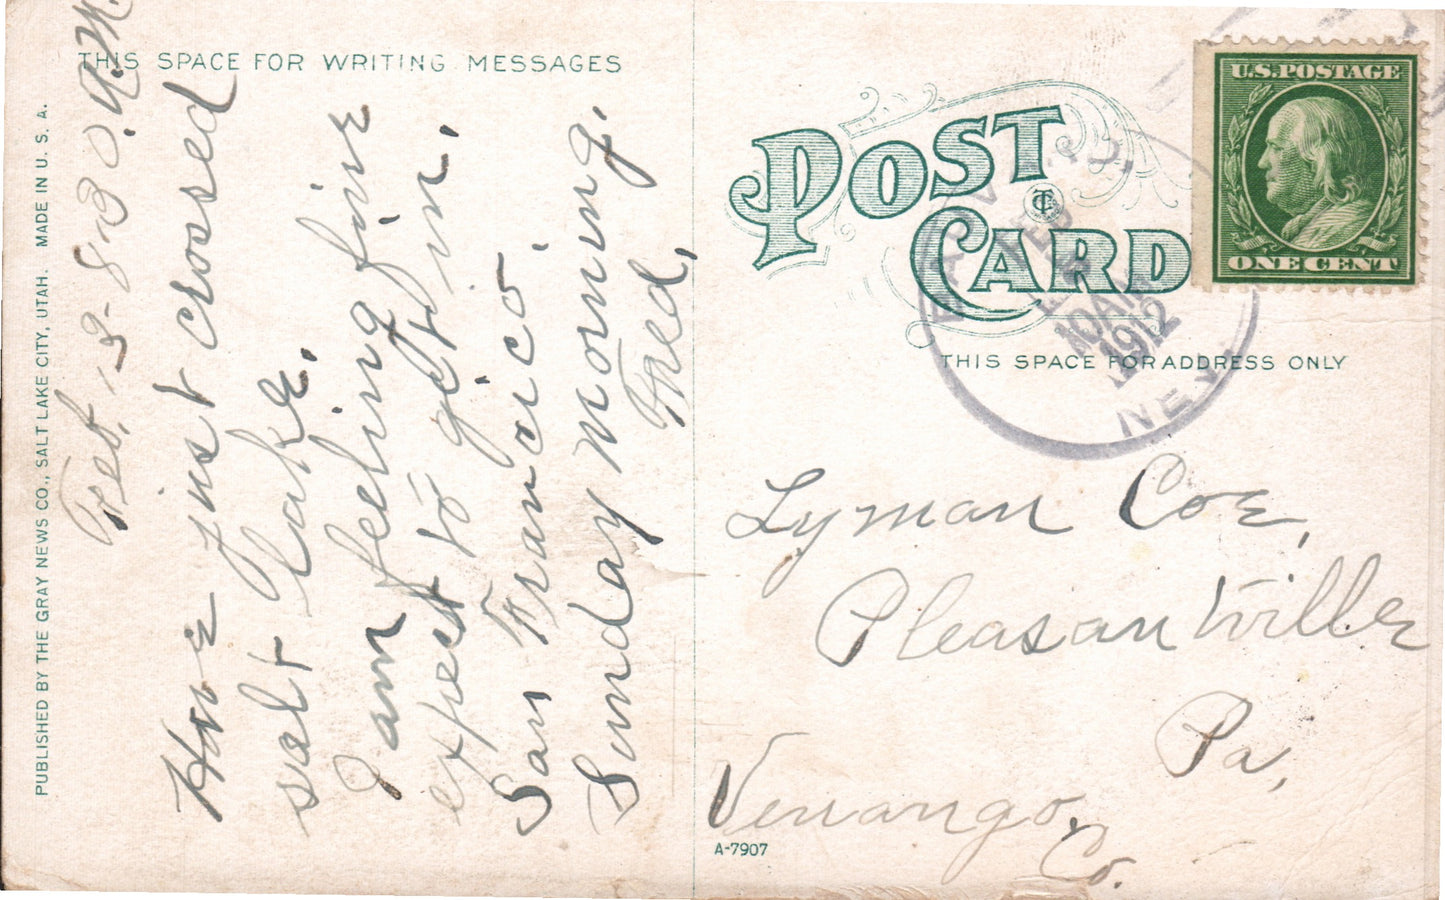 THIS SPACE FOR WRITING MESSAGES
PUBLISHED BY THE GRAY NEWS CO., SALT LAKE CITY, UTAH. MADE IN U. S. A.
Feb. 13-8:30 A.M.
Have just crossed
salt lake.
I am feeling fine
expect to get in
San Francico.
Sunday morning.
Fred,
POST
CARD
THIS SPACE FOR ADDRESS ONLY
U.S. POSTAGE
ONE CENT
FEB
10 AM
1912
NEV
Lyman Coe,
Pleasantville
Pa,
Venango,
Co.
A-7907